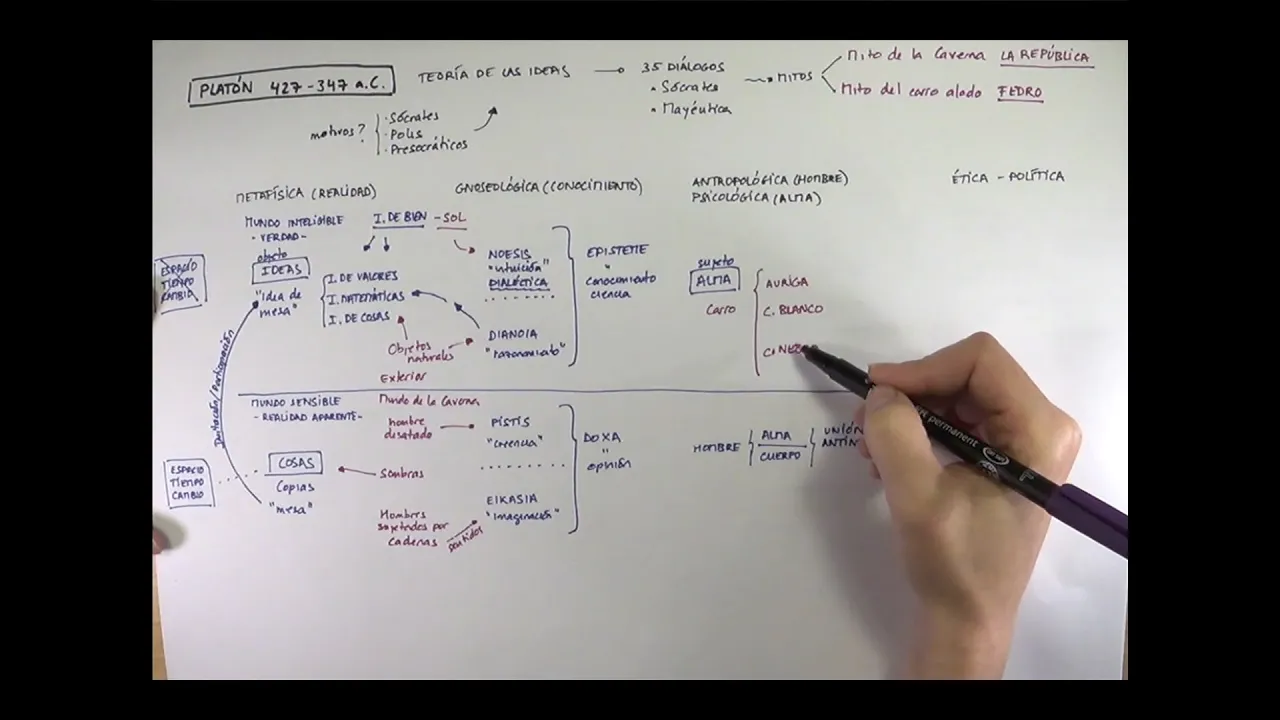 PLATÓN 427-347 a.C.
TEORÍA DE LAS IDEAS
35 DIÁLOGOS
• Sócrates
• Mayéutica
MITOS
Mito de la Caverna LA REPÚBLICA
Mito del carro alado FEDRO
motivos?
• Sócrates
• Polis
• Presocráticos
METAFÍSICA (REALIDAD)
MUNDO INTELIGIBLE
- VERDAD -
objeto
IDEAS
"idea de
mesa"
ESPACIO
TIEMPO
CAMBIO
I. DE BIEN - SOL
I. DE VALORES
I. MATEMÁTICAS
I. DE COSAS
Objetos
naturales
Exterior
Imitación/Participación
GNOSEOLÓGICA (CONOCIMIENTO)
NOESIS
"intuición"
DIALÉCTICA
DIANOIA
"razonamiento"
EPISTEME
"
conocimiento
ciencia
ANTROPOLÓGICA (HOMBRE)
PSICOLÓGICA (ALMA)
sujeto
ALMA
Carro
AURIGA
C. BLANCO
ÉTICA - POLÍTICA
MUNDO SENSIBLE
- REALIDAD APARENTE -
COSAS
Copias
"mesa"
ESPACIO
TIEMPO
CAMBIO
Mundo de la Caverna
hombre
desatado
Sombras
Hombres
sujetados por
cadenas
sentidos
PISTIS
"creencia"
EIKASIA
"imaginación"
DOXA
"
opinión
HOMBRE
ALMA
CUERPO
UNIÓN
ANTIN
permanent